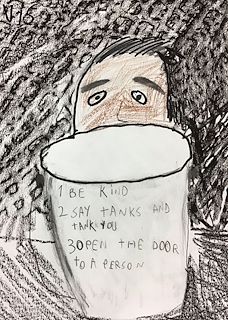 1 BE KIND
2 SAY TANKS AND
tANK YOU
3 OPEN THE DOOR
to A PERSON